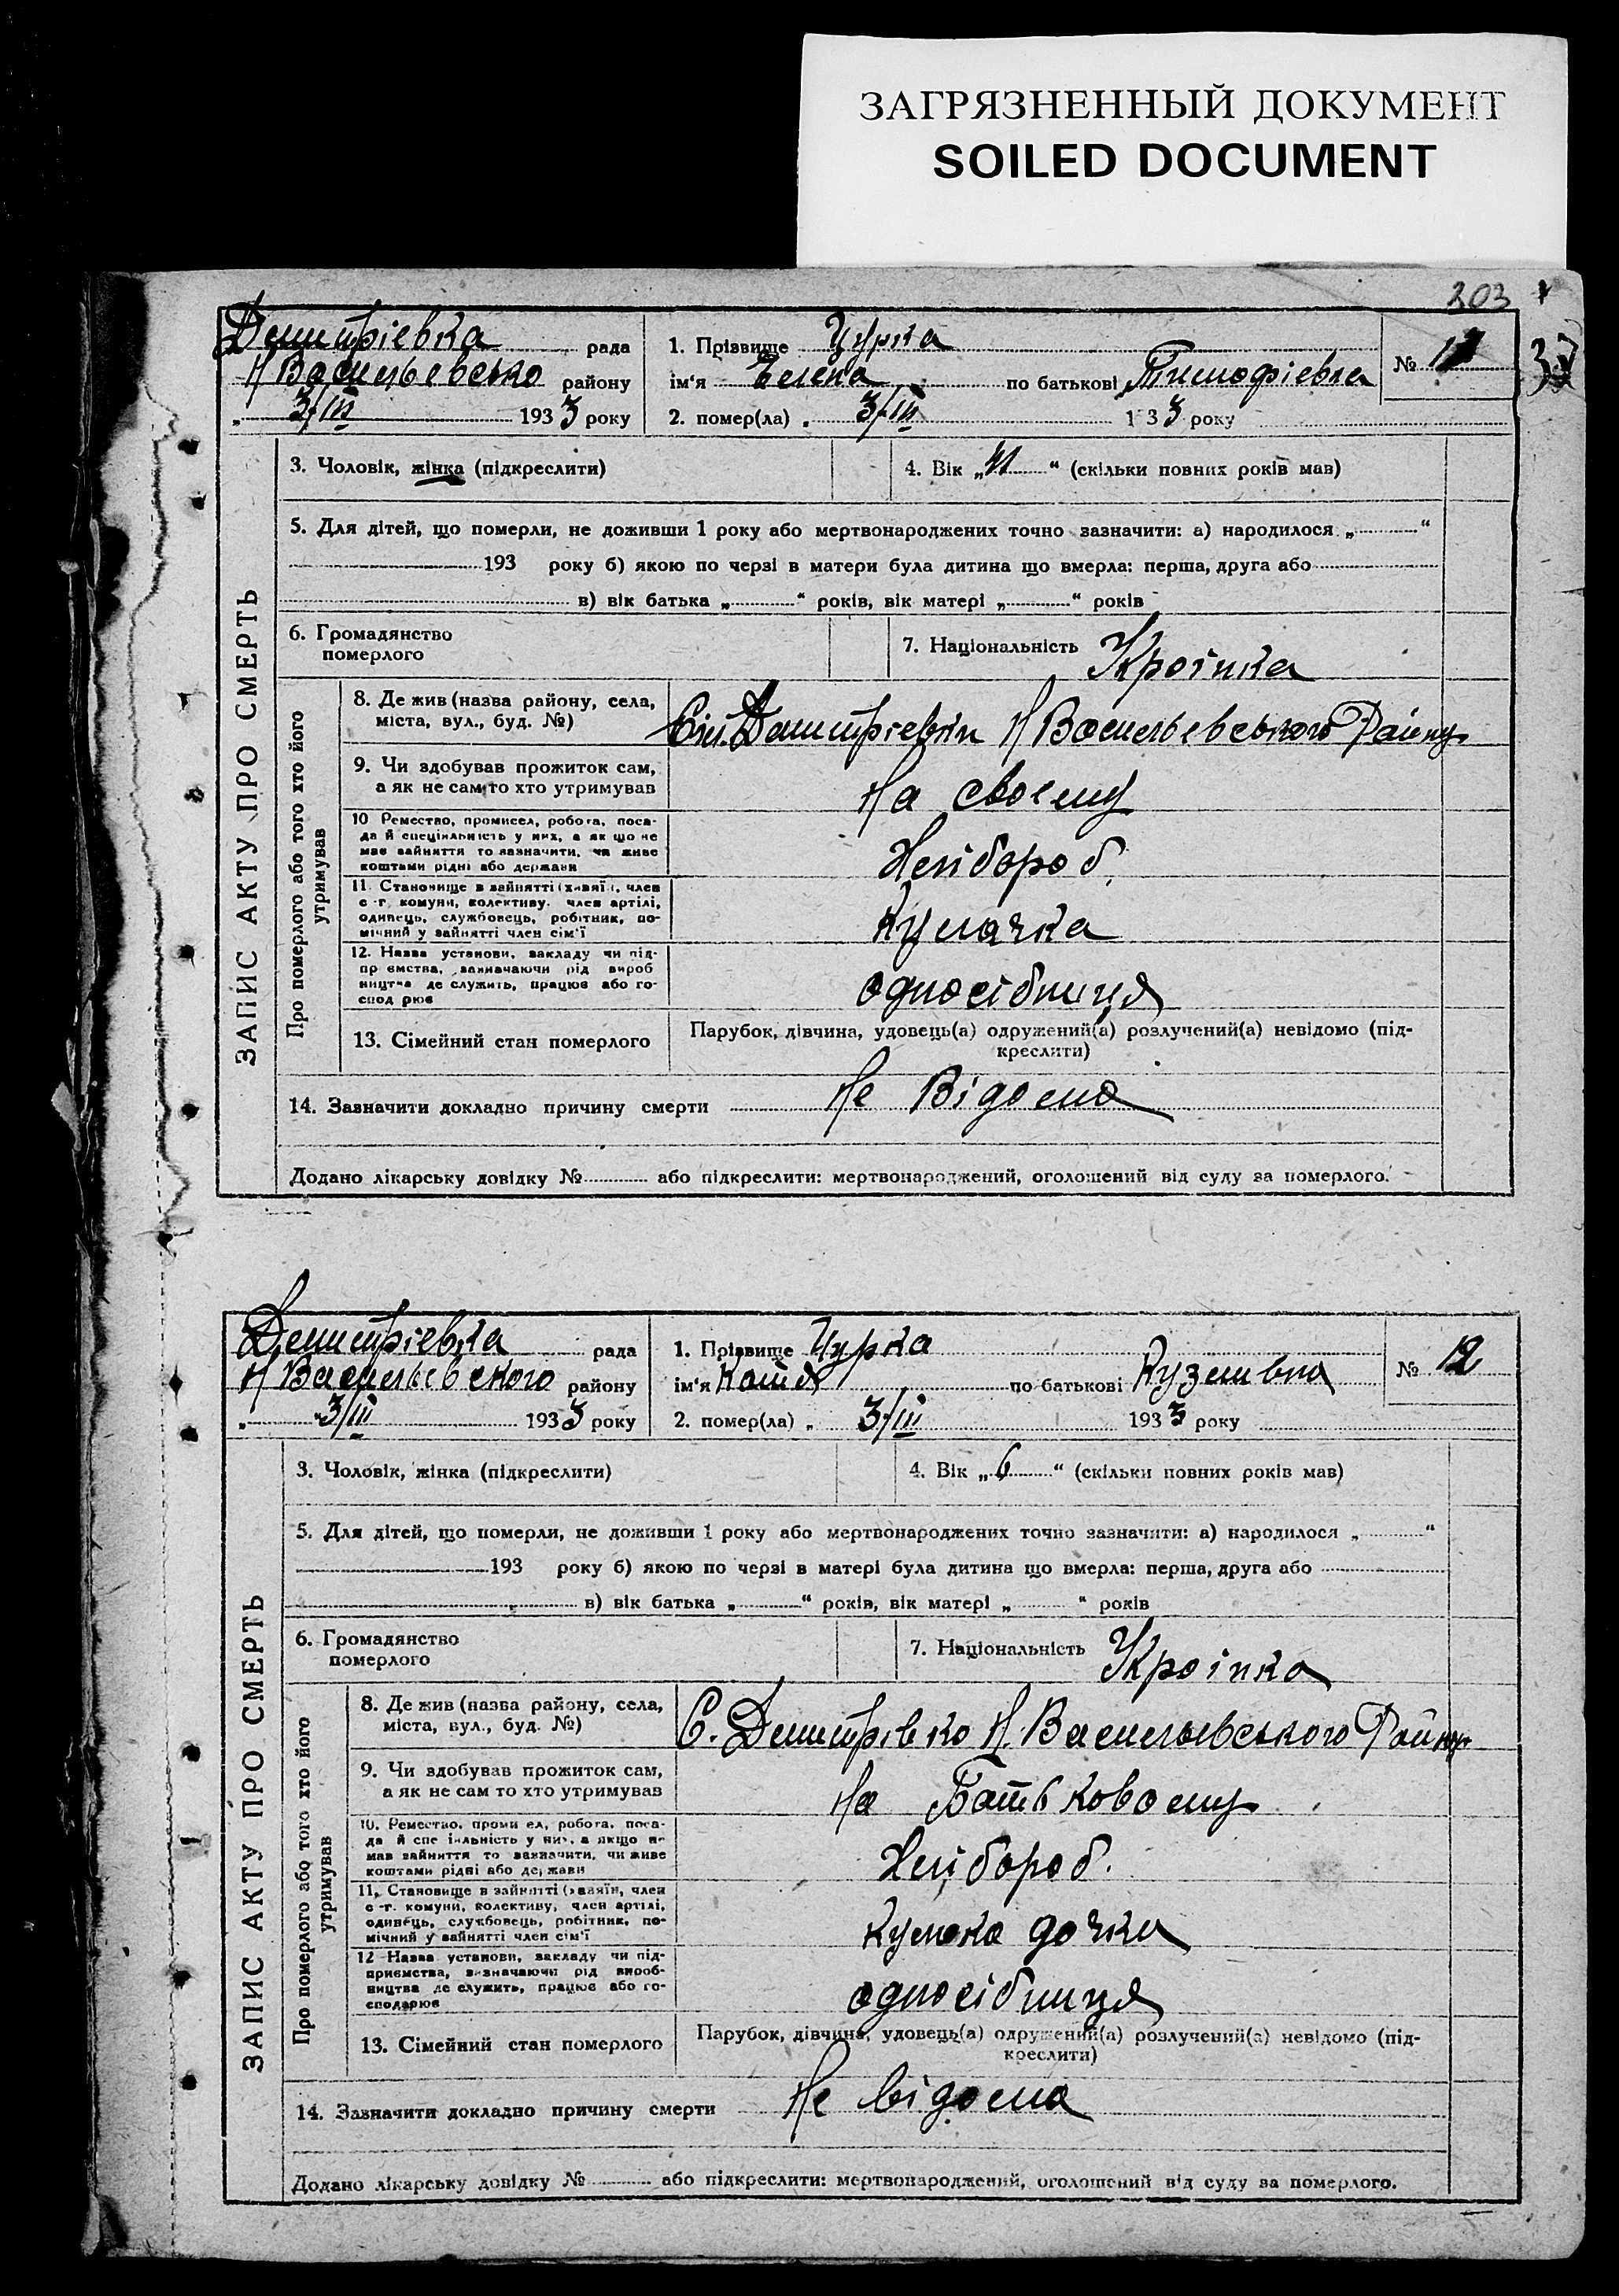 ЗАГРЯЗНЕННЫЙ ДОКУМЕНТ
SOILED DOCUMENT
203
Дмитрієвка рада
Н Васильевсько району
„ 3/III 1933 року
1. Прізвище Цурка
ім‘я Елена по батькові Тимофієвна
2. помер(ла) „ 3/III 133 року
№
3. Чоловік, жінка (підкреслити)
4. Вік „41“ (скільки повних років мав)
5. Для дітей, що померли, не доживши 1 року або мертвонароджених точно зазначити: а) народилося „ “
193 року б) якою по черзі в матери була дитина що вмерла: перша, друга або
в) вік батька „ “ років, вік матері „ “ років
6. Громадянство
померлого
7. Національність Украінка
ЗАПИС АКТУ ПРО СМЕРТЬ
Про померлого або того хто його
утримував
8. Де жив (назва району, села,
міста, вул., буд. №)
Дмитрієвки Н Васильевського Району
9. Чи здобував прожиток сам,
а як не сам то хто утримував
На своему
10 Ремество, промисел, робота, поса-
да й спеціяльність у них, а як що не
мав зайняття то зазначити, чи живе
коштами рідні або держави
Хлібороб
11 Становище в зайнятті (хазяїн, член
с-г. комуни, колективу, член артілі,
одинець, службовець, робітник, по-
мічний у зайнятті член сім'ї
Кулачка
12. Назва установи, закладу чи під-
пр ємства, зазначаючи рід вироб
ництва де служить, працює або го-
спод рює
односібниця
13. Сімейний стан померлого
Парубок, дівчина, удовець(а) одружений(а) розлучений(а) невідомо (під-
креслити)
14. Зазначити докладно причину смерти Не Відома
Додано лікарську довідку № або підкреслити: мертвонароджений, оголошений від суду за померлого.
Дмитрієвка рада
Н Васильевского району
„ 3/III 1933 року
1. Прізвище Цурка
ім‘я Катя по батькові Куземвна
2. помер(ла) „ 3/III 1933 року
№ 12
3. Чоловік, жінка (підкреслити)
4. Вік „6“ (скільки повних років мав)
5. Для дітей, що померли, не доживши 1 року або мертвонароджених точно зазначити: а) народилося „ “
193 року б) якою по черзі в матері була дитина що вмерла: перша, друга або
в) вік батька „ “ років, вік матері „ “ років
6. Громадянство
померлого
7. Національність Украінка
ЗАПИС АКТУ ПРО СМЕРТЬ
Про померлого або того хто його
утримував
8. Де жив (назва району, села,
міста, вул., буд. №)
С. Дмитрівко Н. Васильевського Району
9. Чи здобував прожиток сам,
а як не сам то хто утримував
На Батьковому
10. Ремество, проми ел, робота, поса-
да й спе іяльність у них, а якщо не
мав зайняття то зазначити, чи живе
коштами рідні або держави
Хлібороб.
11. Становище в зайнятті (хазяїн, член
с-г. комуни, колективу, член артілі,
одинець, службовець, робітник, по-
мічний у зайнятті член сім'ї
кулака дочка
12 Назва установи, закладу чи під-
приємства, зазначаючи рід вироб-
ництва де служить, працює або го-
сподарює
односібниця
13. Сімейний стан померлого
Парубок, дівчина, удовець(а) одружений(а) розлучений(а) невідомо (під-
креслити)
14. Зазначити докладно причину смерти Не відома
Додано лікарську довідку № або підкреслити: мертвонароджений, оголошений від суду за померлого.